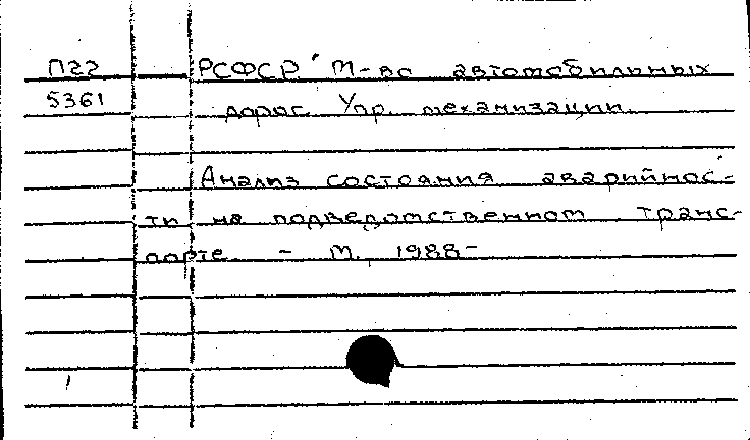 П22 РСФСР. М-во автомобильных
5361 дорог. Упр. механизации.
Анализ состояния аварийнос-
ти на подведомственном транс-
порте. - М., 1988-